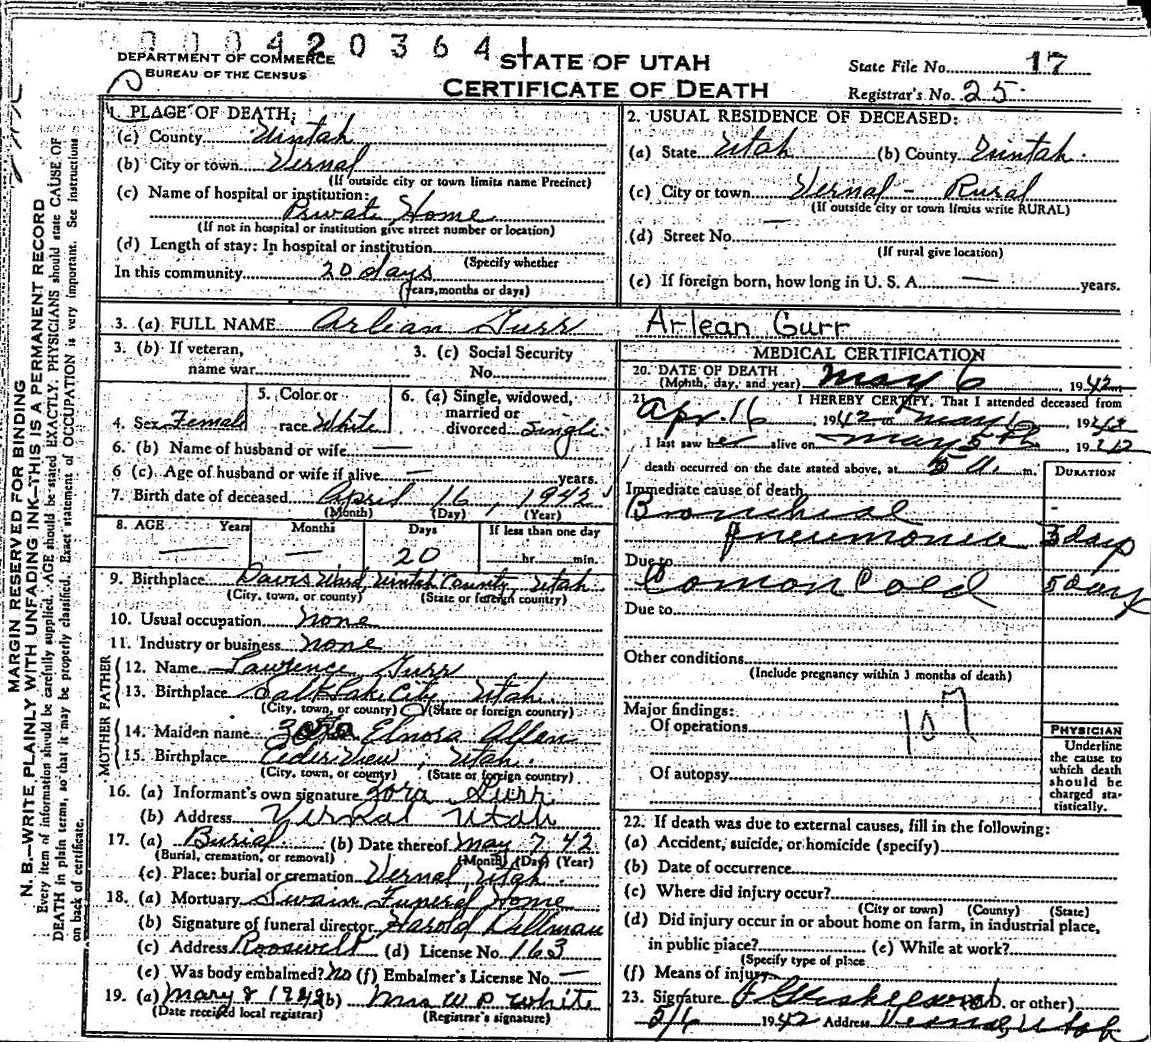 0000420364
DEPARTMENT OF COMMERCE
BUREAU OF THE CENSUS
STATE OF UTAH
CERTIFICATE OF DEATH
State File No. 17
Registrar's No. 25
MARGIN RESERVED FOR BINDING
N. B.—WRITE PLAINLY WITH UNFADING INK—THIS IS A PERMANENT RECORD
Every item of information should be carefully supplied. AGE should be stated EXACTLY. PHYSICIANS should state CAUSE OF
DEATH in plain terms, so that it may be properly classified. Exact statement of OCCUPATION is very important. See instructions
on back of certificate.
1. PLACE OF DEATH:
(a) County Uintah
(b) City or town Vernal
(If outside city or town limits name Precinct)
(c) Name of hospital or institution:
Private Home
(If not in hospital or institution give street number or location)
(d) Length of stay: In hospital or institution
(Specify whether
In this community 20 days
years, months or days)
2. USUAL RESIDENCE OF DECEASED:
(a) State Utah (b) County Uintah
(c) City or town Vernal - Rural
(If outside city or town limits write RURAL)
(d) Street No.
(If rural give location)
(e) If foreign born, how long in U. S. A. — years.
3. (a) FULL NAME Arlean Gurr Arlean Gurr
3. (b) If veteran,
name war
3. (c) Social Security
No.
4. Sex Female
5. Color or
race White
6. (a) Single, widowed,
married or
divorced Single
6. (b) Name of husband or wife —
6 (c). Age of husband or wife if alive — years.
7. Birth date of deceased April 16, 1942
(Month) (Day) (Year)
8. AGE Years Months Days If less than one day
— — 20 hr. min.
9. Birthplace Davis Ward, Uintah County, Utah
(City, town, or county) (State or foreign country)
10. Usual occupation none
11. Industry or business none
FATHER
12. Name Lawrence Gurr
13. Birthplace Salt Lake City, Utah
(City, town, or county) (State or foreign country)
MOTHER
14. Maiden name Elnora Allen
15. Birthplace Ceder View, Utah
(City, town, or county) (State or foreign country)
16. (a) Informant's own signature Zora Gurr
(b) Address Vernal Utah
17. (a) Burial (b) Date thereof May 7 42
(Burial, cremation, or removal) (Month) (Day) (Year)
(c) Place: burial or cremation Vernal, Utah
18. (a) Mortuary Swain Funeral Home
(b) Signature of funeral director Harold Dillman
(c) Address Roosevelt (d) License No. 163
(e) Was body embalmed? No (f) Embalmer's License No. —
19. (a) May 8 1942 (b) Mrs W P White
(Date received local registrar) (Registrar's signature)
MEDICAL CERTIFICATION
20. DATE OF DEATH
(Month, day, and year) May 6, 1942
21. I HEREBY CERTIFY, That I attended deceased from
Apr. 16, 1942 to May 6, 1942
I last saw her alive on May 5th, 1942
death occurred on the date stated above, at 5 a. m.
DURATION
Immediate cause of death
Bronchial
pneumonia 3 days
Due to
Comon Cold 5 days
Due to
Other conditions
(Include pregnancy within 3 months of death)
Major findings:
Of operations
107
Of autopsy
PHYSICIAN
Underline
the cause to
which death
should be
charged sta-
tistically.
22. If death was due to external causes, fill in the following:
(a) Accident, suicide, or homicide (specify)
(b) Date of occurrence
(c) Where did injury occur?
(City or town) (County) (State)
(d) Did injury occur in or about home on farm, in industrial place,
in public place? (e) While at work?
(Specify type of place
(f) Means of injury
23. Signature (M.D. or other)
5/6 1942 Address Vernal, Utah